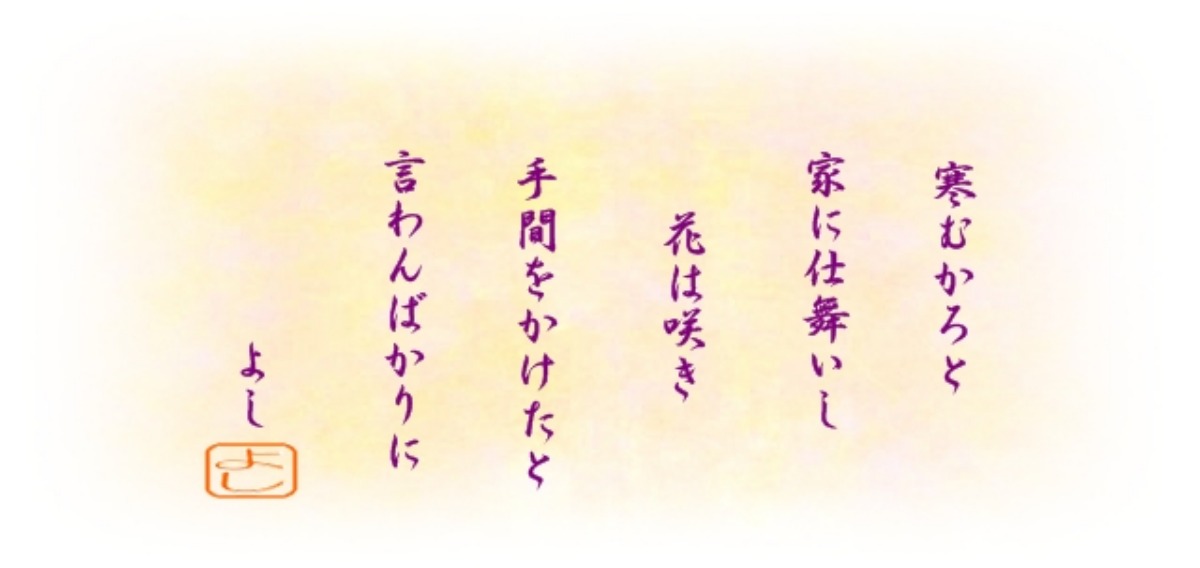 寒むかろと
家に仕舞いし
花は咲き
手間をかけたと
言わんばかりに
よし
よし